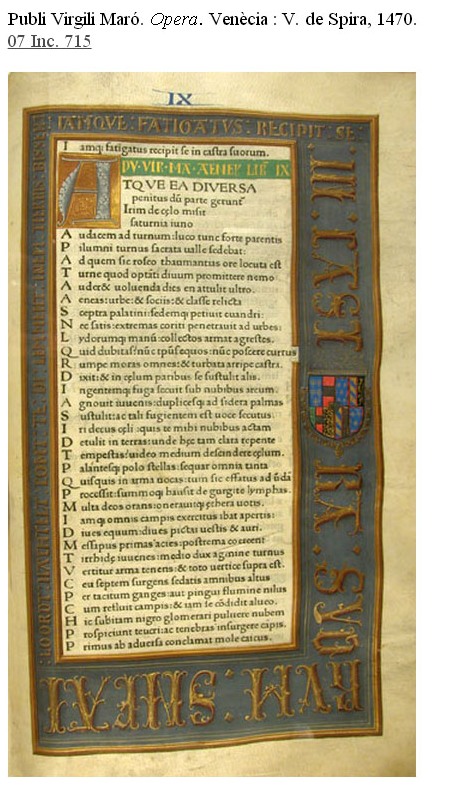 Publi Virgili Maró. Opera. Venècia : V. de Spira, 1470.
07 Inc. 715
IX
IAMQVE · FATIGATVS · RECIPIT · SE ·
I amq; fatigatus recipit se in castra suorum.
PV·VIR·MA·AENEI·LIB·IX
A TQVE EA DIVERSA
penitus dū parte gerunt̄
Irim de cęlo misit
saturnia iuno
A udacem ad turnum:luco tunc forte parentis
P ilumni turnus sacrata ualle sedebat:
A d quem sic roseo thaumantias ore locuta est
T urne quod optāti diuum promittere nemo
A uderet uoluenda dies en attulit ultro.
A eneas:urbe:& sociis:& classe relicta
S ceptra palatini:sedemq; petiuit euandri:
N ec satis:extremas coriti penetrauit ad urbes:
L ydorumq; manū:collectos armat agrestes.
Q uid dubitas?nūc tpus equos:nūc poscere currus
R umpe moras omnes:& turbata arripe castra.
D ixit:& in cęlum paribus se sustulit alis.
I ngentemq; fuga secuit sub nubibus arcum.
A gnouit iuuenis:duplicesq; ad sidera palmas
S ustulit:ac tali fugientem est uoce secutus.
I ri decus cęli :quis te mihi nubibus actam
D etulit in terras:unde hęc tam clara repente
T empestas?uideo medium descendere cęlum.
P alantesq; polo stellas:sequar omnia tanta
Q uisquis in arma uocas:tum sic effatus ad ūdā
P rocessit:summoq; hausit de gurgite lymphas.
M ulta deos orans:onerauitq; ęthera uotis.
I amq; omnis campis exercitus ibat apertis:
D iues equum:diues pictai uestis & auri.
M essapus primas acies:postrema cohercent
T irrhidę iuuenes:medio dux agmine turnus
V ertitur arma tenens:& toto uertice supra est.
C eu septem surgens sedatis amnibus altus
P er tacitum ganges:aut pingui flumine nilus
C um refluit campis:& iam se cōdidit alueo.
H ic subitam nigro glomerari puluere nubem
P rospiciunt teucri:ac tenebras insurgere cāpis.
P rimus ab aduersa conclamat mole caicus.
IN · CAST
RA · SVO
RVM · SMEAI